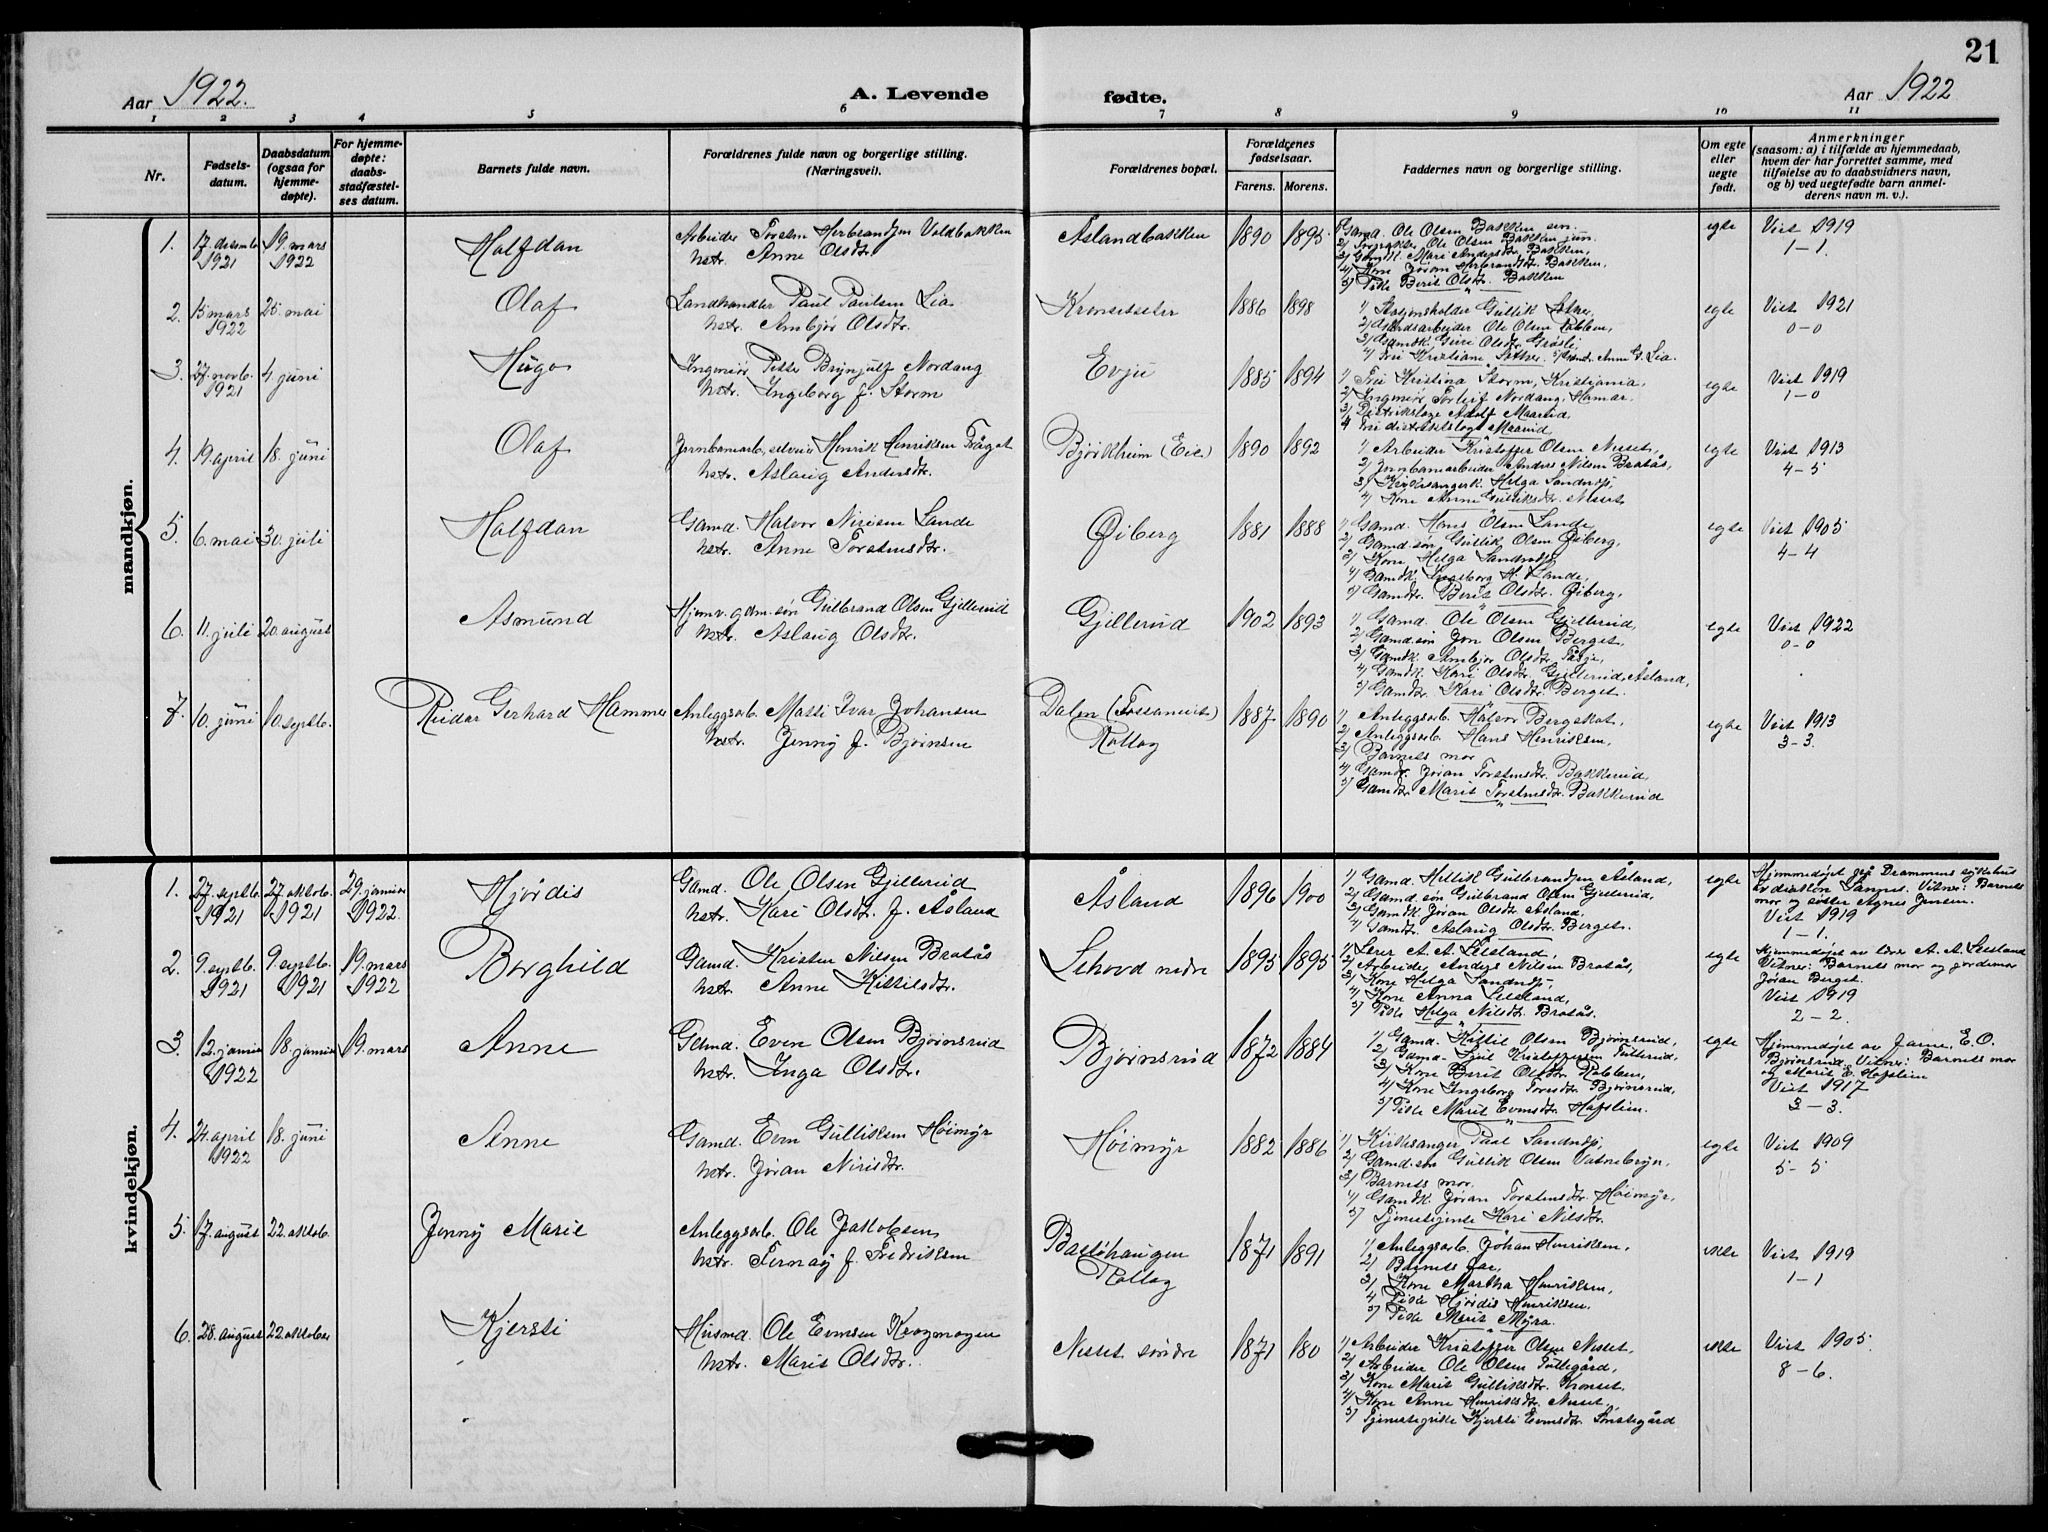 21
Aar 1922.
A. Levende
fødte.
Aar 1922
1 2 3 4 5 6 7 8 9 10 11
Nr.
Fødsels-
datum.
Daabsdatum
(ogsaa for
hjemme-
døpte).
For hjemme-
døpte:
daabs-
stadfæstel-
ses datum.
Barnets fulde navn.
Forældrenes fulde navn og borgerlige stilling.
(Næringsvei).
Forældrenes bopæl.
Forældrenes
fødselsaar.
Farens. Morens.
Faddernes navn og borgerlige stilling.
Om egte
eller
uegte
født.
Anmerkninger
(saasom: a) i tilfælde av hjemmedaab,
hvem der har forrettet samme, med
tilføielse av to daabsvidners navn,
og b) ved uegtefødte barn anmel-
derens navn m. v.).
mandkjøn.
1. 17. desemb. 1921 19. mars 1922 Halfdan
Arbeider Torsten Herbrandsen Voldbakken
hstr. Anne Olsdtr.
Aslandbakken 1890 1895
1) Gamd. Ole Olsen Bakken sen.
2) Ole Olsen Bakken jun.
3) Gamdk. Mari Andersdtr. Bakken,
4) Kone Jøran Herbrandsdtr. Bakken,
5) Pike Berit Olsdtr. Bakken
egte Viet 1919
1-1.
2. 15 mars 1922 25. mai Olaf
Landhandler Paul Paulsen Lia
hstr. Ambjør Olsdtr.
Kronsetseter 1886 1898
1) Stasjonsholder Gullik Sether,
2) Gardsarbeider Ole Olsen Rabben,
3) Gamdk. Guri Olsdtr. Grøsli,
4) Fru Kristiane Sether. 5) Gamdr. Anne G. Lia.
egte Viet 1921
0-0
3. 27. novb. 1921 4. juni Hugo
Ingeniør Petter Brynjulf Nordang
hstr. Ingeborg f. Storm
Evju 1885 1894
1) Fru Kristina Storm, Kristiania,
2) Ingeniør Torleif Nordang, Hamar.
3) Distriktslæge Adolf Maarud,
4 Fru distriktslæge Maarud.
egte Viet 1919
1-0
4. 19. april 18. juni Olaf
Jernbanearb., selveier Henrik Henriksen Traaget
hstr. Aslaug Andersdtr.
Bjørkheim (Eie) 1890 1892
1) Arbeider Kristoffer Olsen Nesset,
2) Jernbanearbeider Andres Nilsen Bratås,
3) Kirkesangerk. Helga Sandnes,
4) Kone Anne Gulliksdtr. Nesset
egte Viet 1913
4-5
5. 6. mai 30. juli Halfdan
Gamd. Halvor Nirisen Lande
hstr. Anne Torstensdtr.
Øiberg 1881 1888
1) Gamd. Hans Olsen Lande,
2) Gamd.søn Gullik Olsen Øiberg,
3) Kone Helga Sandnes,
4) Gamdk. Ingeborg H. Lande,
5) Gamdtr. Berit Olsdtr. Øiberg,
egte Viet 1905
4-4
6. 11. juli 20. august Asmund
Hjemv. gdm. søn Gulbrand Olsen Gjellerud
hstr. Aslaug Olsdtr.
Gjellerud 1902 1893
1) Gamd. Ole Olsen Gjellerud,
2) Gamd.søn Jon Olsen Berget,
3) Gamdk. Ambjør Olsdtr.
4) Gamdk. Kari Olsdtr. Gjellerud, Åsland,
5) Gamdtr. Kari Olsdtr. Berget.
egte Viet 1922
0-0
7. 10. juni 10. septb. Reidar Gerhard Hammer
Anleggsarb. Matti Ivar Johansen
hstr. Jenny f. Bjørnsen
Dalen (Fossanveit)
Rollag
1887 1890
1) Anleggsarb. Halvor Bergskat,
2) Anleggsarb. Hans Henriksen,
3) Barnets mor
4) Gamdr. Jøran Torstensdtr. Bakkerud,
5) Gamdtr. Marit Torstensdtr. Bakkerud
egte Viet 1913
3-3.
kvindekjøn.
1. 27. septb. 1921 27. oktob. 1921 29. januar 1922 Hjørdis
Gamd. Ole Olsen Gjellerud
hstr. Kari Olsdtr. f. Åsland
Åsland 1896 1900
1) Gamd. Hellik Gulbrandsen Åsland,
2) Gamd. søn Gulbrand Olsen Gjellerud,
3) Gamdk. Jøran Olsdtr. Åsland,
4) Gamdtr. Aslaug Olsdtr. Berget.
egte Hjemmedøpt på Drammens sykehus
av diakon Sannes. Vitner: Barnets
mor og søster Agnes Jensen.
Viet 1919
1-1.
2. 9. septb. 1921 9. septb. 1921 19. mars 1922 Borghild
Gamd. Kristen Nilsen Bratås
hstr. Anne Kittilsdtr.
Lehovd nedre 1895 1895
1) Lærer A. A. Leisland,
2) Arbeider Anders Nilsen Bratås,
3) Kone Helga Sandnes,
4) Kone Anna Leisland,
5) Pike Helga Nilsdtr. Bratås.
egte Hjemmedøpt av lærer A. A. Leisland
Vitner: Barnets mor og jordemor
Jøran Berget.
Viet 1919
2-2.
3. 12. januar 1922 18. januar 19. mars Anne
Gamd. Even Olsen Bjørnsrud
hstr. Inga Olsdtr.
Bjørnsrud 1872 1884
1) Gamd. Kittil Olsen Bjørnsrud,
2) Gamd. Kristoffersen Tullerud,
3) Kone Berit Olsdtr. Rabben,
4) Kone Ingeborg Torsdtr. Bjørnsrud,
5) Pike Marit Evensdtr. Hofslein.
egte Hjemmedøpt av faren, E. O.
Bjørnsrud. Vitner: Barnets mor
og Marit E. Hofslein
Viet 1917
3-3.
4. 24. april 1922 18. juni Anne
Gamd. Even Gulliksen Høimyr
hstr. Jøran Nirisdtr.
Høimyr 1882 1886
1) Kirkesanger Paul Sandnes,
2) Gamd.søn Gullik Olsen Vatnebryn,
3) Barnets mor.
4) Gamdk. Jøran Torstensdtr. Høimyr,
5) Tjenestejente Kari Nilsdtr.
egte Viet 1909
5-5
5. 17. august 22. oktob. Jenny Marie
Anleggsarb. Ole Jakobsen
hstr. Fernay f. Fredriksen
Bastøhaugen
Rollag
1871 1891
1) Anleggsarb. Johan Henriksen,
2) Barnets far,
3) Kone Martha Henriksen,
4) Pike Hjørdis Henriksen,
5) Pike Marit Myra.
ekte Viet 1919
1-1
6. 28. august 22. oktober Kjersti
Husmd. Ole Evensen Kragmogen
hstr. Marit Olsdtr.
Nesset søndre 1871 180
1) Arbeider Kristoffer Olsen Nesset,
2) Arbeider Ole Olsen Tuftegård,
3) Kone Marit Gulliksdtr. Kronset.
4) Kone Anne Henriksdtr. Nesset,
5) Tjenestepike Kjersti Evensdtr. Tonstegård
ekte Viet 1905.
8-6.